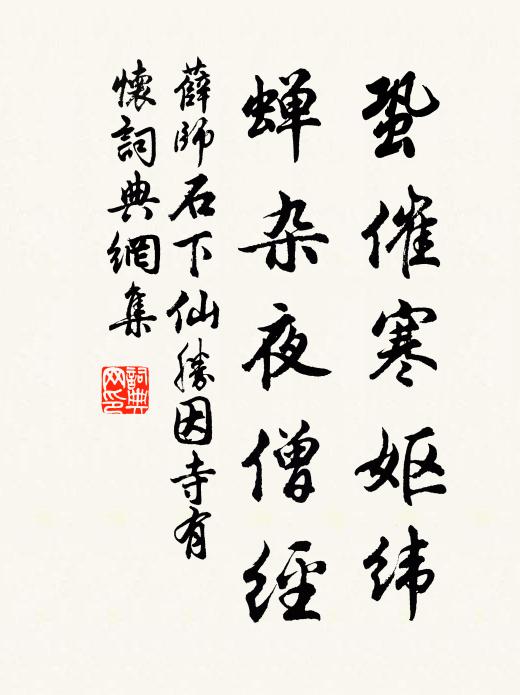 蛩催寒妪纬
蝉杂夜僧经
薛师石下仙勝因寺有
懷詞典網集
詞典网印